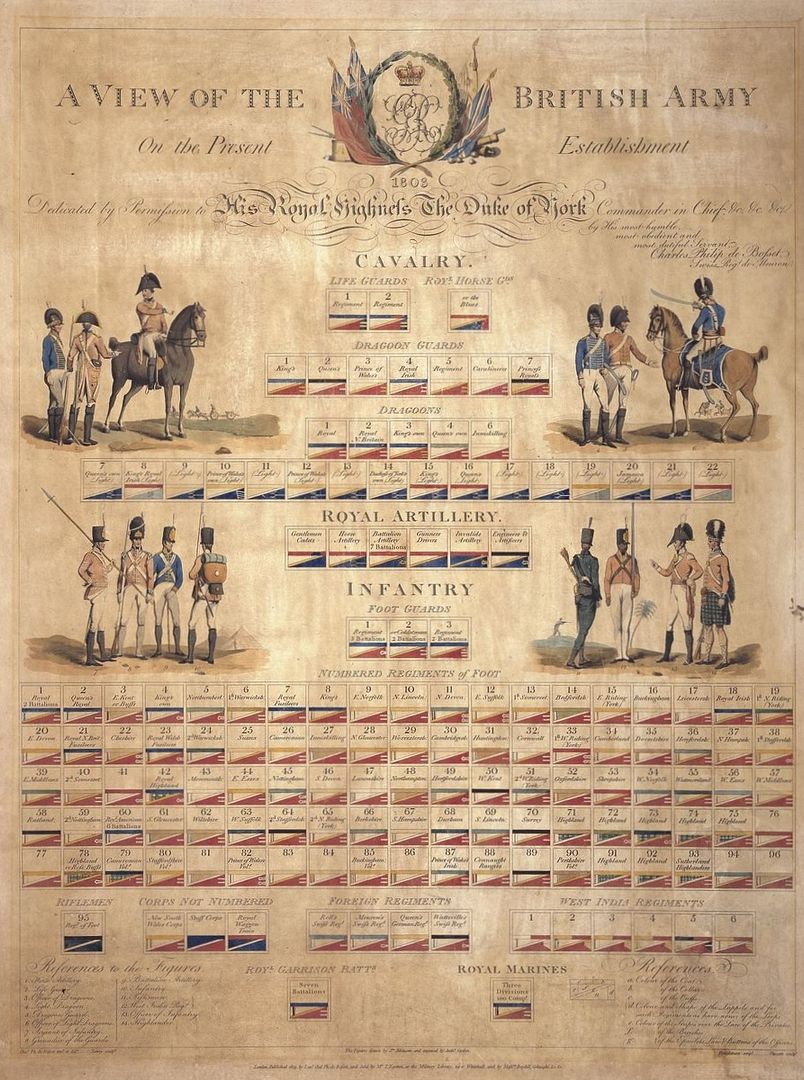 A VIEW OF THE BRITISH ARMY
On the Present Establishment
1803
Dedicated by Permission to His Royal Highness The Duke of York Commander in Chief &c. &c. &c.
by His most humble,
most obedient and
most dutiful Servant
Charles Philip de Bosset
Swiss Regt. de Meuron
CAVALRY.
LIFE GUARDS ROYL. HORSE GDS
1 Regiment 2 Regiment or the Blues
DRAGOON GUARDS
1 King's 2 Queen's 3 Prince of Wales's 4 Royal Irish 5 Regiment 6 Carabineers 7 Princess Royal's
DRAGOONS
1 Royal 2 Royal N. Britain 3 King's own 4 Queen's own 6 Inniskilling
7 Queen's own (Light) 8 King's Royal Irish (Light) 9 (Light) 10 Prince of Wales's own (Light) 11 (Light) 12 Prince of Wales's (Light) 13 (Light) 14 Duchess of York's own (Light) 15 King's (Light) 16 Queen's (Light) 17 (Light) 18 (Light) 19 (Light) 20 Jamaica (Light) 21 (Light) 22 (Light)
ROYAL ARTILLERY.
Gentlemen Cadets Horse Artillery Battalion Artillery 7 Battalions Gunners Drivers Invalids Artillery Engineers & Artificers
INFANTRY
FOOT GUARDS
1 Regiment 3 Battalions 2 or Coldstream 2 Battalions 3 Regiment 2 Battalions
NUMBERED REGIMENTS of FOOT
1 Royal 2 Battalions 2 Queen's Royal 3 E. Kent or Buffs 4 King's own 5 Northumberd. 6 1st Warwicksh. 7 Royal Fusileers 8 King's 9 E. Norfolk 10 N. Lincoln 11 N. Devon 12 E. Suffolk 13 1st Somerset 14 Bedfordsh. 15 E. Riding (York) 16 Buckingham 17 Leicestersh. 18 Royal Irish 19 1st N. Riding (York)
20 E. Devon 21 Royal N. Brit. Fusileers 22 Cheshire 23 Royal Welsh Fusileers 24 2d Warwicksh. 25 Sussex 26 Cameronian 27 Inniskilling 28 N. Glocester 29 Worcestersh. 30 Cambridgesh. 31 Huntingdon 32 Cornwall 33 1st W. Riding (York) 34 Cumberland 35 Dorsetshire 36 Herefordsh. 37 N. Hampsh. 38 1st Staffordsh.
39 E. Middlesex 40 2d Somerset 41 42 Royal Highland 43 Monmouth 44 E. Essex 45 Nottingham 46 S. Devon 47 Lancashire 48 Northampton 49 Hertfordsh. 50 W. Kent 51 2d W. Riding (York) 52 Oxfordshire 53 Shropshire 54 W. Norfolk 55 Westmoreland 56 W. Essex 57 W. Middlesex
58 Rutland 59 2d Nottingham 60 Rl. American 6 Battalions 61 S. Glocester 62 Wiltshire 63 W. Suffolk 64 2d Staffordsh. 65 2d N. Riding (York) 66 Berkshire 67 S. Hampshire 68 Durham 69 S. Lincoln 70 Surrey 71 Highland 72 Highland 73 Highland 74 Highland 75 Highland 76
77 78 Highland or Ross. Buffs 79 Cameronian Vols. 80 Staffordshire Vols. 81 82 Prince of Wales's Vols. 83 84 85 Buckingham Vols. 86 87 Prince of Wales's Irish 88 Connaught Rangers 89 90 Perthshire Vols. 91 Highland 92 Highland 93 Sutherland Highlanders 94 96
RIFLEMEN CORPS NOT NUMBERED FOREIGN REGIMENTS WEST INDIA REGIMENTS
95 Regt. of Foot New South Wales Corps Staff Corps Royal Waggon Train Roll's Swiss Regt. Meuron's Swiss Regt. Queen's German Regt. Watteville's Swiss Regt. 1 2 3 4 5 6
References to the Figures. ROYL. GARRISON BATTS. ROYAL MARINES References.
Seven Battalions Three Divisions
1. Horse Artillery
2. Life Guard
3. Officer of Dragoons
4. Light Dragoon
5. Dragoon Guard
6. Officer of Light Dragoons
7. Sergeant of Infantry
8. Grenadier of the Guards
9. Battalion Artillery
10. Infantry
11. Riflemen
12. West India Regt.
13. Officer of Infantry
14. Highlander
a. Colour of the Coat
of the Collar
of the Cuffs